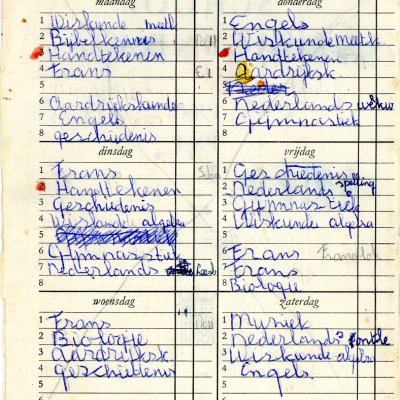 maandag
1 Wiskunde meetk
2 Bijbelkennis
3 Handtekenen
4 Frans
5
6 Aardrijkskunde
7 Engels
8 geschiedenis
dinsdag
1 Frans
2 Handtekenen
3 Geschiedenis
4 Wiskunde algebra
5
6 Gymnastiek
7 Nederlands
8
woensdag
1 Frans
2 Biologie
3 Aardrijksk
4 geschiedenis
5
donderdag
1 Engels
2 Wiskunde meetk
3 Handtekenen
4 Aardrijksk
5
6 Nederlands
7 Gymnastiek
8
vrijdag
1 Geschiedenis
2 Nederlands spelling
3 Gymnastiek
4 Wiskunde algebra
5
6 Frans
7 Frans
8 Biologie
zaterdag
1 Muziek
2 Nederlands
3 Wiskunde algebra
4 Engels
5